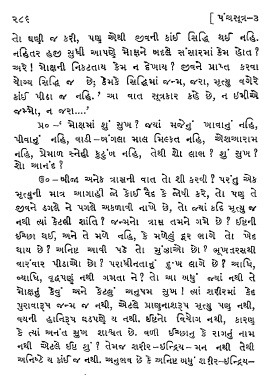 ૨૮૬ [ પંચસૂત્ર-૩
તો ઘણી જ કરી, પણ એથી જીવની કાંઈ સિદ્ધિ થઈ નહિ.
નહિતર હજી સુધી આપણે મોક્ષને બદલે સંસારમાં કેમ હોત?
અરે! મોક્ષની નિકટતાય કેમ ન દેખાય? જીવને પ્રાપ્ત કરવા
યોગ્ય સિદ્ધિ જ છે; કેમકે સિદ્ધિમાં જન્મ, જરા, મૃત્યુ વગેરે
કાંઈ પીડા જ નહિ.' આ વાત સૂત્રકાર કહે છે, न इमीसे
जम्मो, न जरा....'
પ્ર૦-' મોક્ષમાં શું સુખ? જ્યાં મજેનું ખાવાનું નહિ,
પીવાનું નહિ, વાડી-બંગલા માલ મિલકત નહિ, એશઆરામ
નહિ, પ્રેમાળ સ્નેહી કુટુંબ નહિ, તેથી શો લાભ? શું સુખ?
શો આનંદ?
ઉ૦-બીજા અનેક ત્રાસની વાત તો શી કરવી? પરંતુ એક
મૃત્યુની માત્ર આગાહી જો કોઈ વૈદ્ય કે જોષી કરે, તો પણ તે
જીવને ડગલે ને પગલે અકળાવી નાખે છે, તો જ્યાં કદિ મૃત્યુ જ
નથી ત્યાં કેટલી શાંતિ? જન્મનો ત્રાસ તમને ગમે છે? ઈષ્ટની
ઇચ્છા થઈ, અને તે મળે નહિ, કે મળેલું દૂર ભાગે તો ખેદ
થાય છે? અનિષ્ટ આવી પડે તો મુંઝાઓ છો? ભૂખતરસથી
વારંવાર પીડાઓ છો? પરાધીનતાનું દુઃખ લાગે છે? આધિ,
વ્યાધિ, વૃદ્ધપણું નથી ગમતા ને? તો આ બધું જ્યાં નથી તે
મોક્ષનું કેવું અને કેટલું અનુપમ સુખ! ત્યાં શરીરમાં કેદ
પુરાવારૂપ જન્મ જ નથી, એટલે પ્રાણનાશરૂપ મૃત્યુ પણ નથી,
વયની હાનિરૂપ ઘડપણે ય નથી, ઈષ્ટનો વિયોગ નથી, કારણ
કે ત્યાં અનંત સુખ શાશ્વત છે. વળી ઇચ્છાનું કે રાગનું નામ
નથી એટલે ઈષ્ટ શું? તેમજ શરીર-ઇન્દ્રિય-મન નથી તેથી
અનિષ્ટે ય કાંઈ જ નથી. અનુભવ છે કે અનિષ્ટ બધું શરીર-ઇન્દ્રિય-